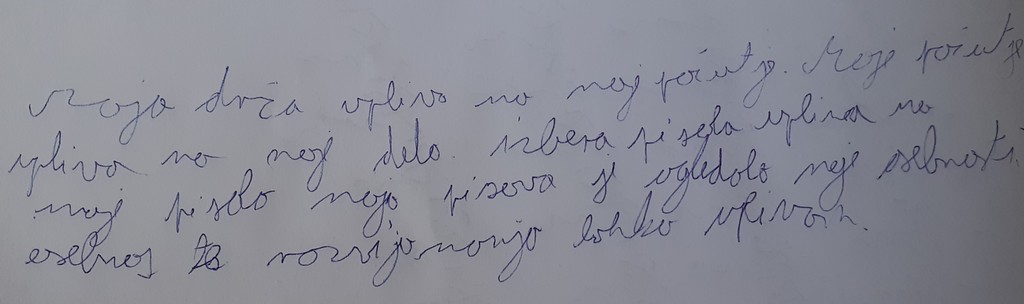 Moja drža vpliva na moj počutje. Moje počutje
vpliva na moje delo. izbera pisala vpliva na
moje pisalo moja pisava je ogledalo moje osebnosti.
osebnos se razvija, nanjo lahko vplivam.